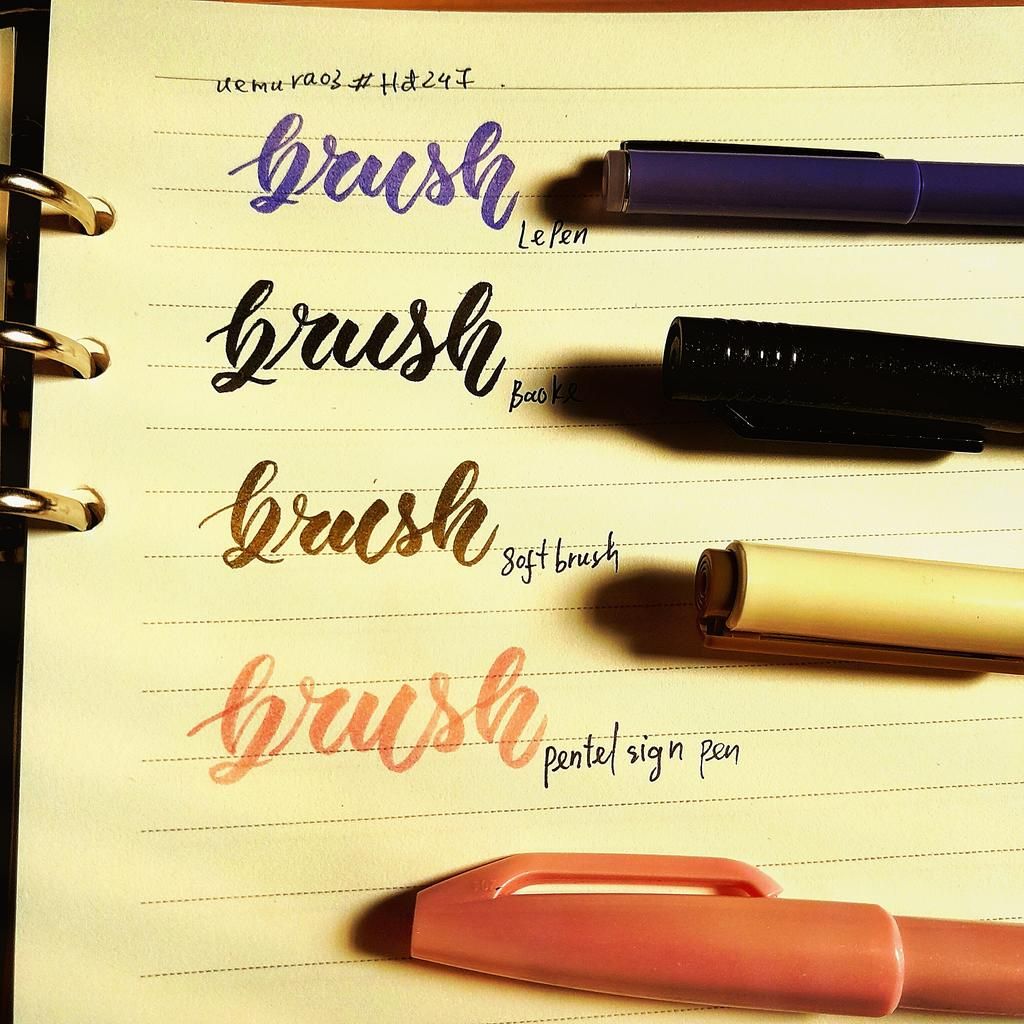 brush
LePen
brush
Baoke
brush
Soft brush
brush
pentel sign pen